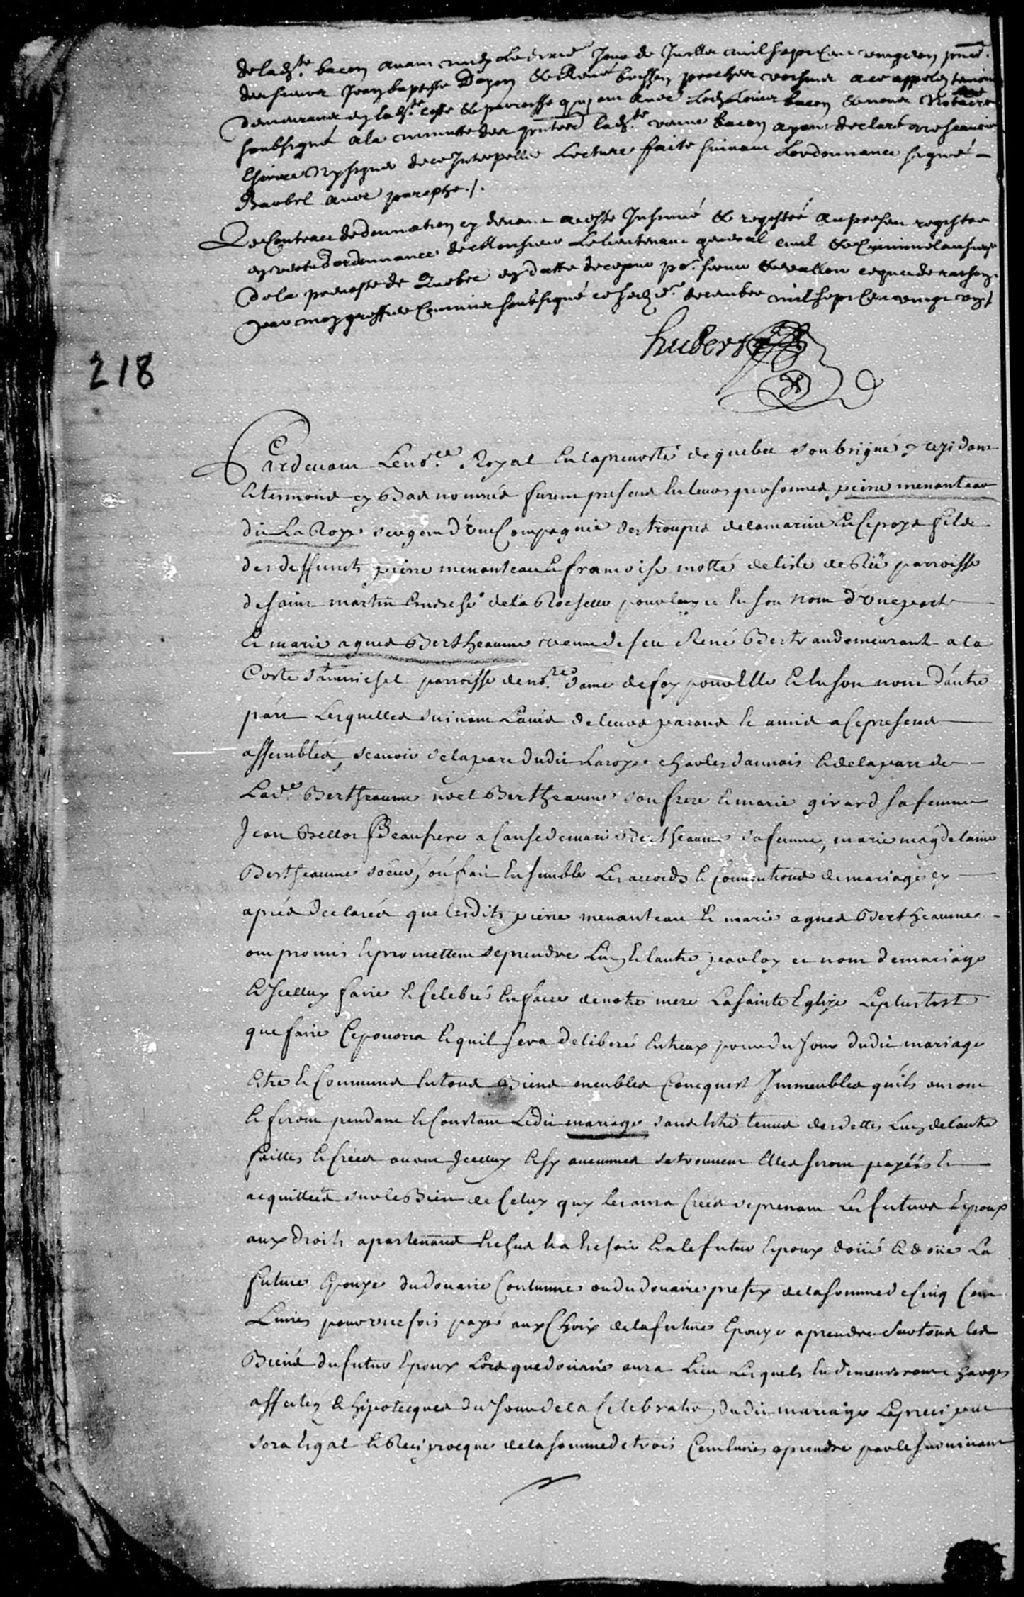 de lad.te bacon avant midy Le Jour de Juillet mil sept Cent vingt en pnce
des sieurs Jean baptiste Dozon & René buisson proches voisins a ce appelés temoins
demeurans en lad.te coste & parroisse quy ont avec led. sieur bacon & nous Notaire
soubsigné a la minutte des pntes lad.te veuve bacon ayant declaré ne scavoir
Escrire Ny signer de ce Interpellée Lecture faite suivant Lordonnance signé
Barbel avec paraphe ./.
Le Contract de donnation cy devant a esté Insinué & registré au present registre
en vertu d'ordonnance de Monsieur Le Lieutenant general civil & Criminel au siege
de la prevosté de Quebec en datte de ce jour pr. servir & valloir ce que de raison
par moy greffier Commis soubsigné ce decembre mil sept Cent vingt
hubert
218
Pardevant Le no.re Royal En la prevosté de quebec soubsigné y residant
& temoins cy Bas nommés furent presens En leurs personnes pierre menanteau
dit La Roze sergent d'Une Compagnie des troupes de la marine En ce pays fils
des deffunts pierre menanteau & francoise motté de lisle de Ré parroisse
de Saint martin Evesché de la Rochelle pour luy & En son nom d'une part
Et marie agnes Bertheaume veuve de feu René Bertrand demeurant a la
Coste St michel parroisse de no.re Dame de foy pour Elle & En son nom d'autre
part Lesquelles suivant L'avis de leurs parans & amis a Ce presens
assemblés, scavoir de la part dudit Laroze charles dannais & de la part de
Lad.e Bertheaume noel Bertheaume son frere & marie girard sa femme
Jean Bellor Beaufrere a Cause de marie Bertheaume sa femme, marie magdelaine
Bertheaume soeur, ont fait Ensemble Les accords & Conventions de mariage cy
aprés declarés que lesdits pierre menanteau & marie agnes Bertheaume
ont promis & promettent se prendre L'un & L'autre par loy et nom de mariage
& Icelluy faire & Celebrer En face de notre mere La Sainte Eglize Le plus tost
que faire Ce poura & quil sera deliberé Entreux pour du Jour dudit mariage
Estre & Communs En tous Biens meubles Conquest Immeubles qu'ils auront
& feront pendant & Constant Ledit mariage sans Estre tenus des dettes L'un de L'autre
faittes & créés avant Icelluy & sy aucunnes se trouvent Elles seront payéés &
acquittées sur le Bien de Celuy quy les aura Créés se prenant Les futurs Epoux
aux droits apartenants a le futur Epoux doüé & doüe La
future Epouze du douaire Coutumier ou du douaire prefix de la somme de Cinq Cent
Livres pour une fois payé aux Choix de la future Epouze a prendre sur tous les
Biens du futur Epoux Lors que douaire aura Lieu Lesquels En demeureront Chargés
affectés & hipotecqués du Jour de la Celebration dudit mariage Le preciput
sera Egal & Reciprocque de la somme de trois Cent livres a prendre par le survivant